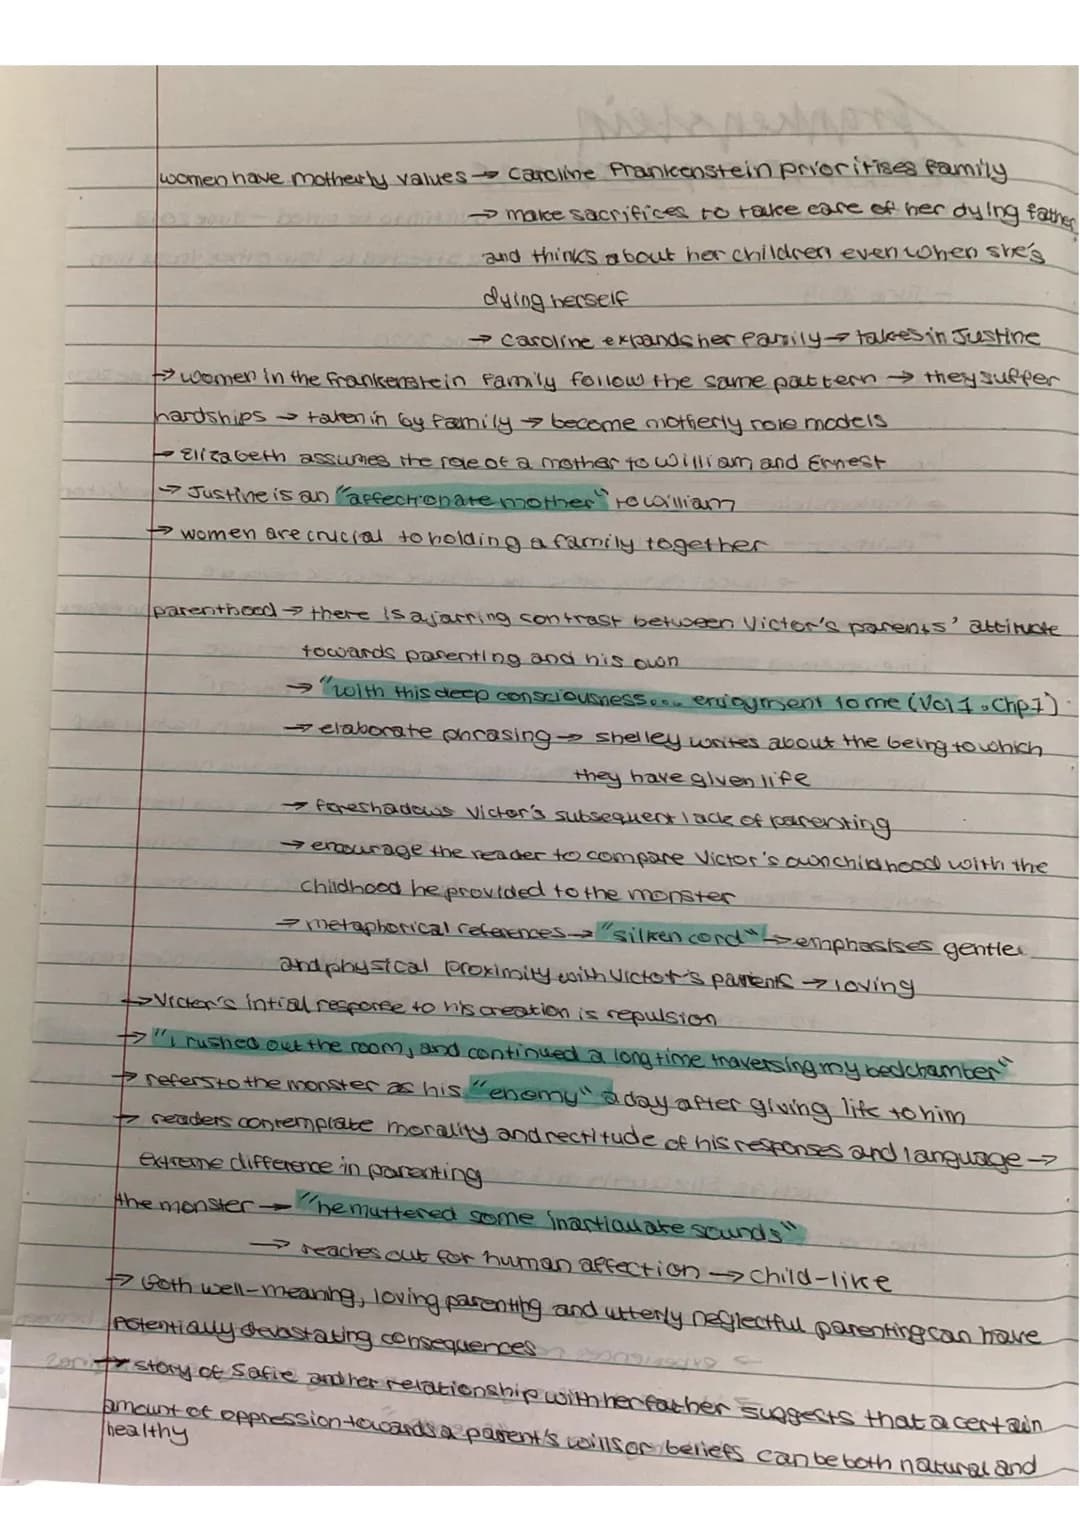 women have motherly values → Caroline Frankenstein prioritises family
→ make sacrifices to take care of her dying father
and thinks about her children even when she's
dying herself
→ Caroline expands her family → takes in Justine
→ women in the Frankenstein family follow the same pattern → they suffer
hardships → taken in by family → become motherly role models
→ Elizabeth assumes the role of a mother to William and Ernest
→ Justine is an "affectionate mother" to William
→ women are crucial to holding a family together
parenthood → there is a jarring contrast between Victor's parents' attitude
towards parenting and his own
→ "with this deep consciousness... enjoyment to me (Vol 1. Chp 1)
→ elaborate phrasing → Shelley writes about the being to which
they have given life
→ foreshadows Victor's subsequent lack of parenting
→ encourage the reader to compare Victor's own childhood with the
childhood he provided to the monster
→ metaphorical references → "silken cord" → emphasises gentle
and physical proximity with Victor's parents → loving
→ Victor's intial response to his creation is repulsion
→ "I rushed out the room, and continued a long time traversing my bedchamber"
→ refers to the monster as his "enemy" a day after giving life to him
→ readers contemplate morality and rectitude of his responses and language →
extreme difference in parenting
the monster → "he muttered some inarticulate sounds"
→ reaches out for human affection → child-like
→ Both well-meaning, loving parenting and utterly neglectful parenting can have
potentially devastating consequences
→ story of Safie and her relationship with her father suggests that a certain
amount of oppression towards a parent's wills or beliefs can be both natural and
healthy